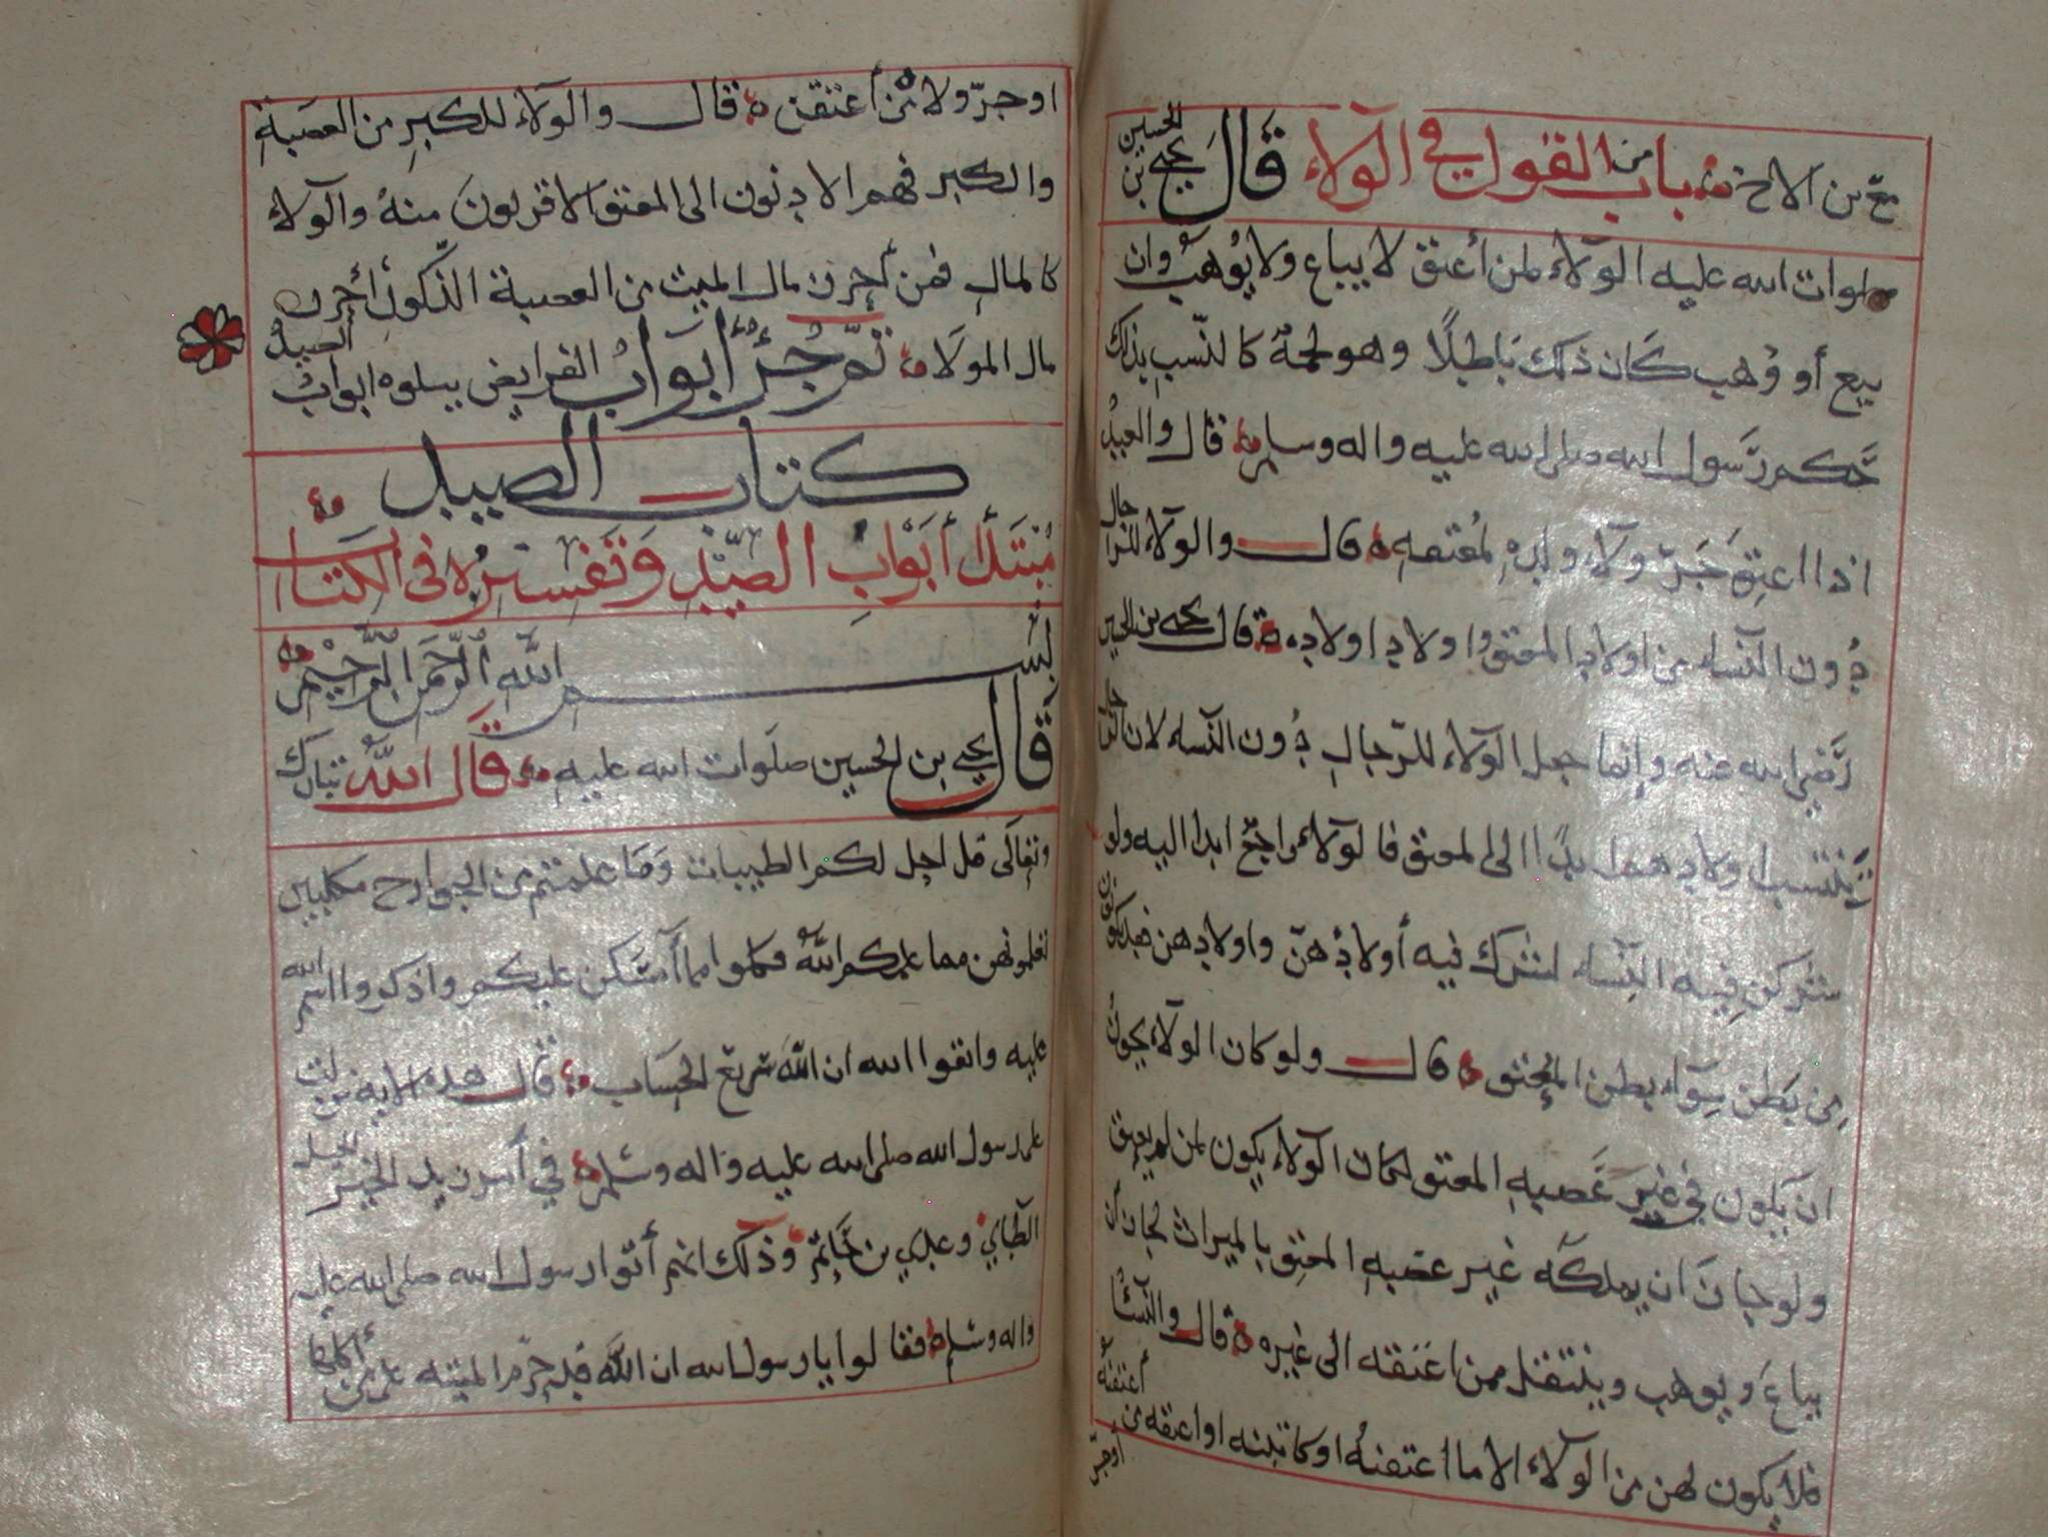 مع بن الاخ باب من القول في الولاء قال يحيى بن الحسين
صلوات الله عليه الولاء لمن أعتق لا يباع ولا يوهب وان
بيع أو وهب كان ذلك باطلًا وهو لحمة كالنسب بذلك
حكم رسول الله صلى الله عليه واله وسلم قال والعبد
اذا اعتق جر ولاء ولده لمعتقه قال والولاء للرجال
دون النساء من اولاد المعتق واولاد اولاده قال يحيى بن الحسين
رضي الله عنه وإنما جعل الولاء للرجال دون النساء لان الرجال
ينتسب اولادهم ابدا الى المعتق فالولاء راجع ابدا اليه ولو
شركن فيه النساء لشرك فيه أولادهن واولادهن فقد يكونون
من بطن سواء بطن المعتق قال ولو كان الولاء يجوز
ان يكون في غير عصبه المعتق لكان الولاء يكون لمن لم يعتق
ولو جاز ان يملكه غير عصبه المعتق بالميراث لجاز أن
يباع ويوهب وينتقل ممن اعتقه الى غيره قال والنساء
فلا يكون لهن من الولاء الا ما اعتقنه او كاتبنه او اعتقه من أعتقنه
أو جر
او جر ولاء من أعتقن قال والولاء للكبر من العصبة
والكبر فهم الادنون الى المعتق الاقربون منه والولاء
كالمال فمن أحرز مال الميت من العصبة الذكور أحرز
مال المولا تم جزء أبواب الفرايض يتلوه ابواب الصيد
كتاب الصيد
مبتدأ أبواب الصيد وتفسيره في الكتاب
بسم الله الرحمن الرحيم
قال يحيى بن الحسين صلوات الله عليه قال الله تبارك
وتعالى قل احل لكم الطيبات وما علمتم من الجوارح مكلبين
تعلمونهن مما علمكم الله فكلوا مما أمسكن عليكم واذكروا اسم الله
عليه واتقوا الله ان الله سريع الحساب قال هذه الاية نزلت
على رسول الله صلى الله عليه واله وسلم في أمر زيد الخير الخيل
الطاي وعدي بن حاتم وذلك انهم أتوا رسول الله صلى الله عليه
واله وسلم فقالوا يا رسول الله ان الله قد حرم الميته على من أكلها